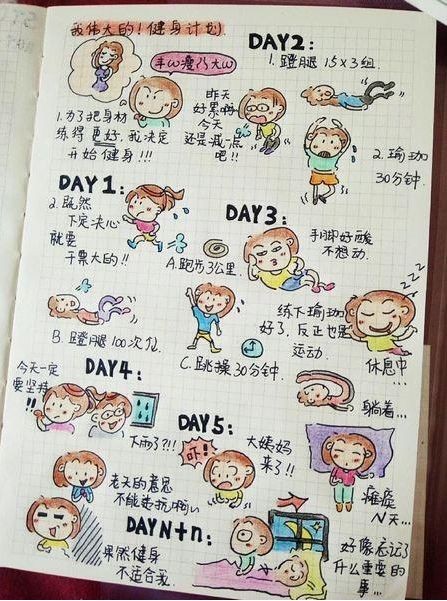 我伟大的!健身计划
丰ω瘦乃大ω
1.为了把身材
练得更好,我决定
开始健身!!!
DAY2:
1.蹬腿 15×3组.
昨天
好累啊
今天
还是减一点
吧!!
2.瑜珈
30分钟.
DAY1:
2.既然
下定决心
就要
干票大的!!
A.跑步3公里.
B.蹬腿100次/位.
C.跳操30分钟.
DAY3:
手脚好酸
不想动.
练下瑜珈
好了,反正也是
运动.
ZZZ
休息中...
躺着...
DAY4:
今天一定
要坚持
!!
下雨了?!!
老天的意思
不能违抗啊
果然健身
不适合我.
DAY5:
吓!
大姨妈
来了!!
瘫痪
N天...
DAYN+n:
好像忘记了
什么重要的
事...